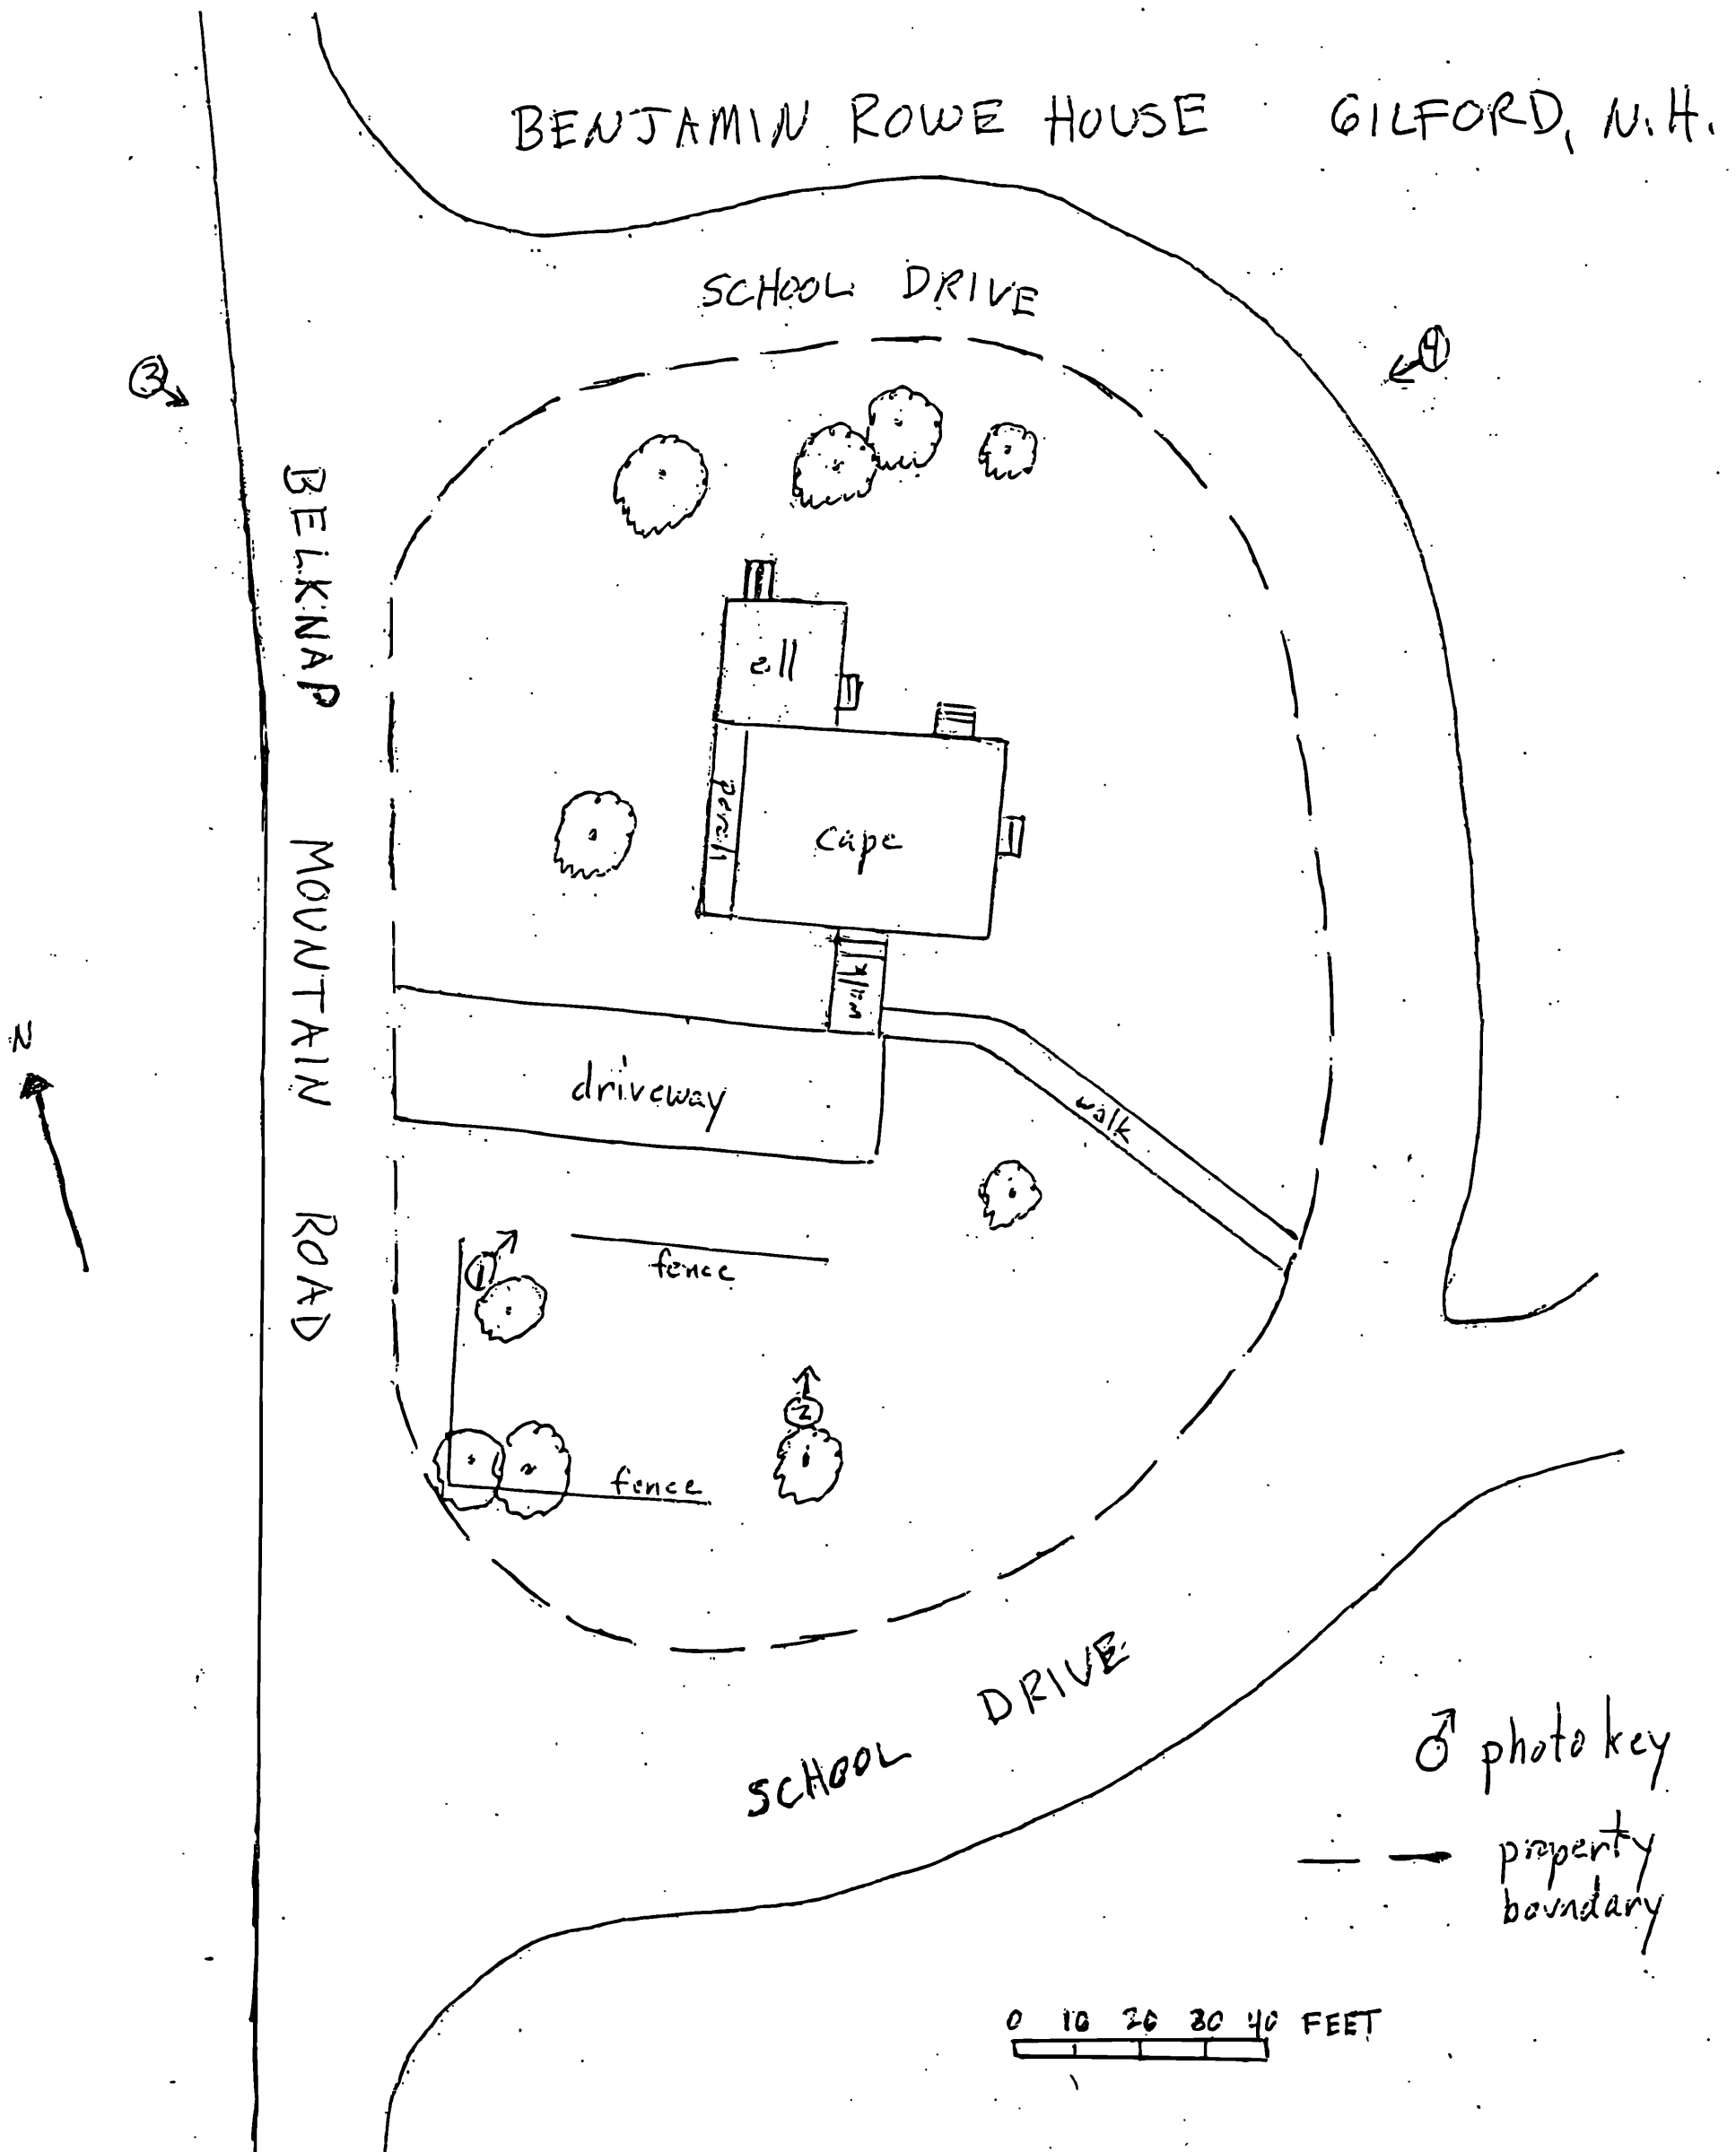 BENJAMIN ROWE HOUSE GILFORD, N.H.
SCHOOL DRIVE
3
4
BELKNAP MOUNTAIN ROAD
ell
porch
cape
walk
N
driveway
walk
1
fence
2
fence
SCHOOL DRIVE
photo key
property
boundary
0 10 20 30 40 FEET